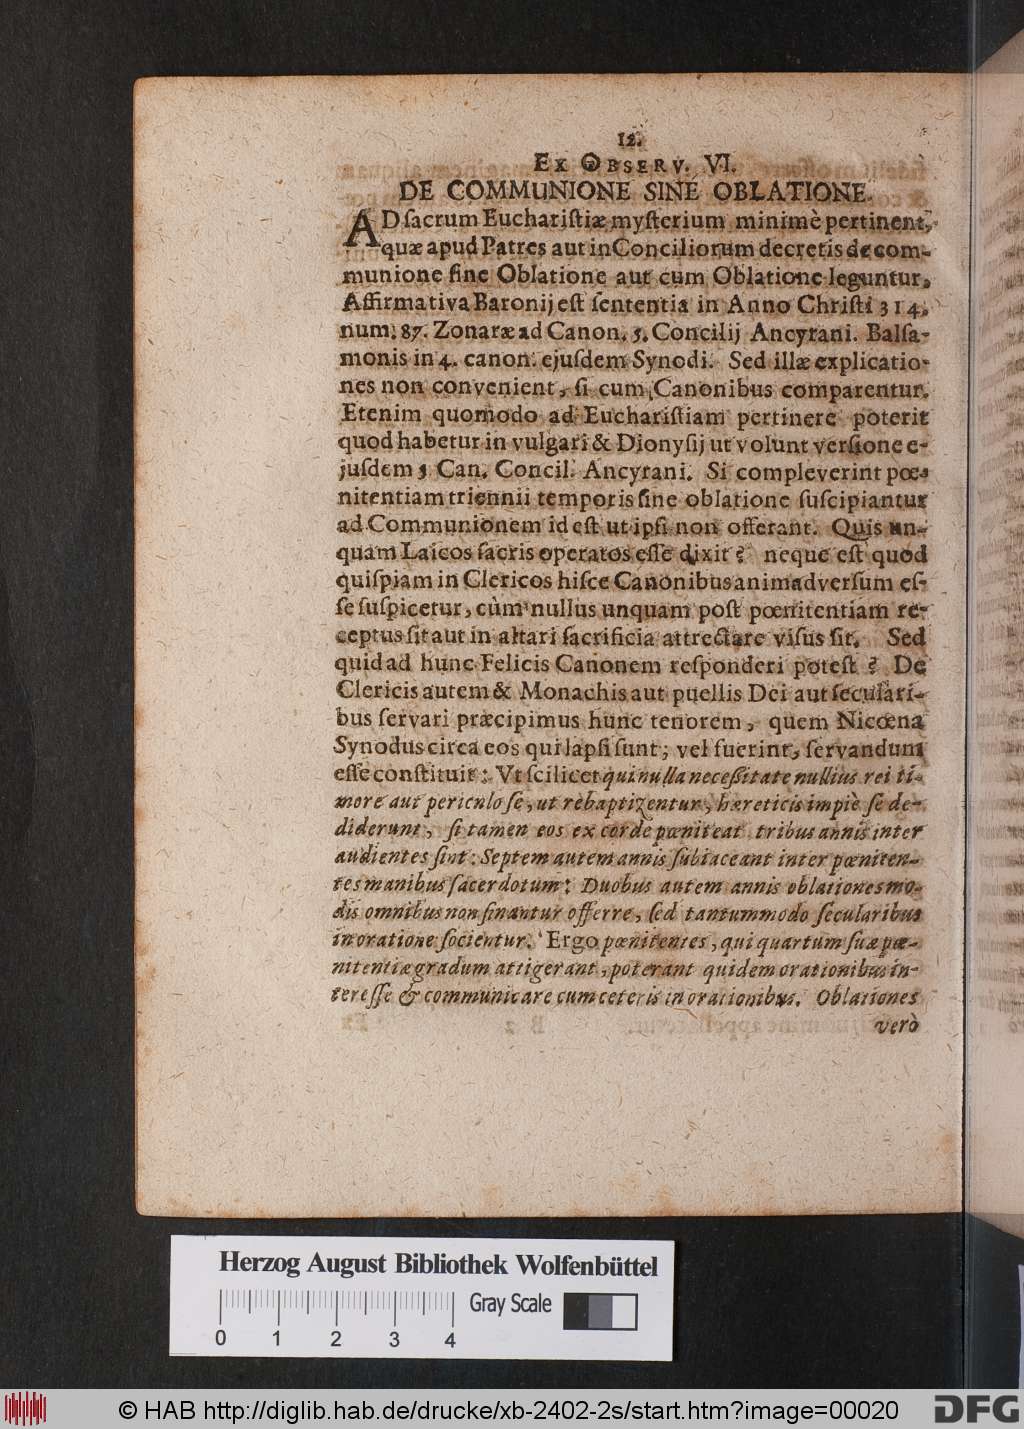 12.
EX OBSERV. VI.
DE COMMUNIONE SINE OBLATIONE.
AD sacrum Euchariſtiæ myſterium minimè pertinent,
quæ apud Patres aut in Conciliorum decretis de com-
munione ſine Oblatione aut cum Oblatione leguntur,
Affirmativa Baronij eſt ſententia in Anno Chriſti 314,
num. 87. Zonaræ ad Canon. 5. Concilij Ancyrani. Balſa-
monis in 4. canon. ejuſdem Synodi. Sed illæ explicatio-
nes non convenient, ſi cum Canonibus comparentur.
Etenim quomodo ad Euchariſtiam pertinere poterit
quod habetur in vulgari & Dionyſij ut volunt verſione e-
juſdem 5 Can. Concil. Ancyrani. Si compleverint pœ-
nitentiam triennii temporis ſine oblatione ſuſcipiantur
ad Communionem id eſt ut ipſi non offerant. Quis un-
quam Laicos ſacris operatos eſſe dixit? neque eſt quod
quiſpiam in Clericos hiſce Canonibus animadverſum eſ-
ſe ſuſpicetur, cùm nullus unquam poſt pœnitentiam re-
ceptus ſit aut in altari ſacrificia attrectare viſus ſit. Sed
quid ad hunc Felicis Canonem reſponderi poteſt? De
Clericis autem & Monachis aut puellis Dei aut ſeculari-
bus ſervari præcipimus hunc tenorem, quem Nicœna
Synodus circa eos qui lapſi ſunt; vel fuerint, ſervandum
eſſe conſtituit: Vt ſcilicet qui nulla neceſſitate nullius rei ti-
more aut periculo ſe, ut rebaptizentur, hæreticis impiè ſe de-
diderunt, ſi tamen eos ex corde pœniteat tribus annis inter
audientes ſint: Septem autem annis ſubiaceant inter pœniten-
tes manibus ſacerdotum: Duobus autem annis oblationes mo-
dis omnibus non ſinantur offerre, ſed tantummodo ſecularibus
in oratione ſocientur. Ergo pœnitentes, qui quartum ſuæ pœ-
nitentiæ gradum attigerant, poterant quidem orationibus in-
tereſſe & communicare cum ceteris in orationibus. Oblationes
verò
Herzog August Bibliothek Wolfenbüttel
0 1 2 3 4 Gray Scale
© HAB http://diglib.hab.de/drucke/xb-2402-2s/start.htm?image=00020
DFG